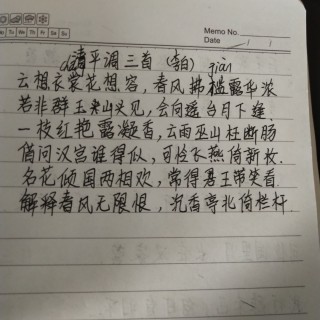 Memo No.
Mo Tu We Th Fr Sa Su
Date / /
清平调三首（李白）
云想衣裳花想容，春风拂槛露华浓
若非群玉山头见，会向瑶台月下逢
一枝红艳露凝香，云雨巫山枉断肠
借问汉宫谁得似，可怜飞燕倚新妆.
名花倾国两相欢，常得君王带笑看
解释春风无限恨，沉香亭北倚栏杆